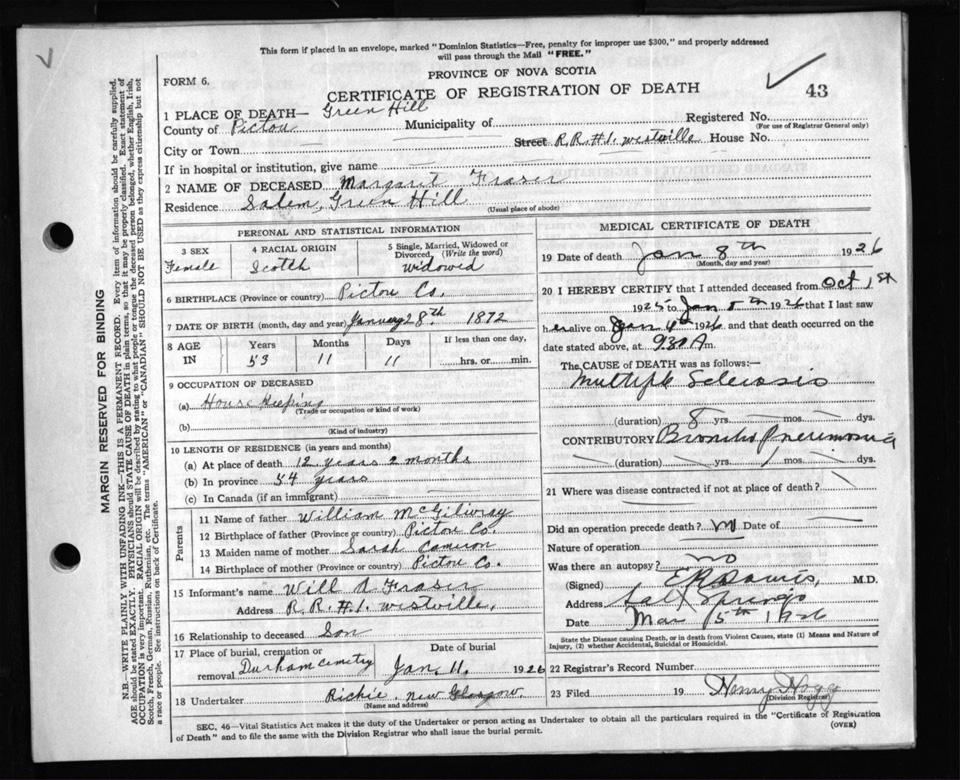 This form if placed in an envelope, marked "Dominion Statistics—Free, penalty for improper use $300," and properly addressed
will pass through the Mail "FREE."
PROVINCE OF NOVA SCOTIA
FORM 6.
CERTIFICATE OF REGISTRATION OF DEATH
43
1 PLACE OF DEATH— Green Hill
Registered No.
(For use of Registrar General only)
County of Pictou Municipality of
City or Town Street R.R.#1. Westville House No.
If in hospital or institution, give name
2 NAME OF DECEASED Margaret Fraser
Residence Salem, Green Hill
(Usual place of abode)
PERSONAL AND STATISTICAL INFORMATION
3 SEX 4 RACIAL ORIGIN 5 Single, Married, Widowed or
Divorced, (Write the word)
Female Scotch Widowed
6 BIRTHPLACE (Province or country) Pictou Co.
7 DATE OF BIRTH (month, day and year) January 28th. 1872
8 AGE IN Years Months Days If less than one day,
53 11 11 hrs. or min.
9 OCCUPATION OF DECEASED
(a) House Keeping
(Trade or occupation or kind of work)
(b)
(Kind of industry)
10 LENGTH OF RESIDENCE (in years and months)
(a) At place of death 12 years 2 months
(b) In province 54 years
(c) In Canada (if an immigrant)
Parents
11 Name of father William McGilvray
12 Birthplace of father (Province or country) Pictou Co.
13 Maiden name of mother Sarah Cameron
14 Birthplace of mother (Province or country) Pictou Co.
15 Informant's name Will A Fraser
Address R.R.#1. Westville,
16 Relationship to deceased Son
17 Place of burial, cremation or Date of burial
removal Durham cemetry Jan. 11. 1926
18 Undertaker Richie. New Glasgow.
(Name and address)
MEDICAL CERTIFICATE OF DEATH
19 Date of death Jan 8th 1926
(Month, day and year)
20 I HEREBY CERTIFY that I attended deceased from Oct 1st
1925 to Jan 8th 1926 that I last saw
her alive on Jan 6th 1926 and that death occurred on the
date stated above, at 9.30 A m.
The CAUSE OF DEATH was as follows:
Multiple Sclerosis
(duration) 8 yrs. mos. dys.
CONTRIBUTORY Broncho Pneumonia
(duration) yrs. 1 mos. dys.
21 Where was disease contracted if not at place of death?
Did an operation precede death? no Date of
Nature of operation
Was there an autopsy? no
(Signed) M.D.
Address Salt Springs
Date Mar 15th 1926
State the Disease causing Death, or in death from Violent Causes, state (1) Means and Nature of
Injury, (2) whether Accidental, Suicidal or Homicidal.
22 Registrar's Record Number
23 Filed 19 Henry Hogg
(Division Registrar)
SEC. 46—Vital Statistics Act makes it the duty of the Undertaker or person acting as Undertaker to obtain all the particulars required in the "Certificate of Registration
of Death" and to file the same with the Division Registrar who shall issue the burial permit.
(OVER)
MARGIN RESERVED FOR BINDING
N.B.—WRITE PLAINLY WITH UNFADING INK—THIS IS A PERMANENT RECORD. Every item of information should be carefully supplied.
AGE should be stated EXACTLY. PHYSICIANS should STATE CAUSE OF DEATH in plain terms, so that it may be properly classified. Exact statement of
OCCUPATION is very important. RACIAL ORIGIN will be described by stating to what people or tongue the deceased person belonged, whether English, Irish,
Scotch, French, German, Russian, Ruthenian, etc. The terms "AMERICAN" or "CANADIAN" SHOULD NOT BE USED as they express citizenship but not
a race or people. See instructions on back of Certificate.